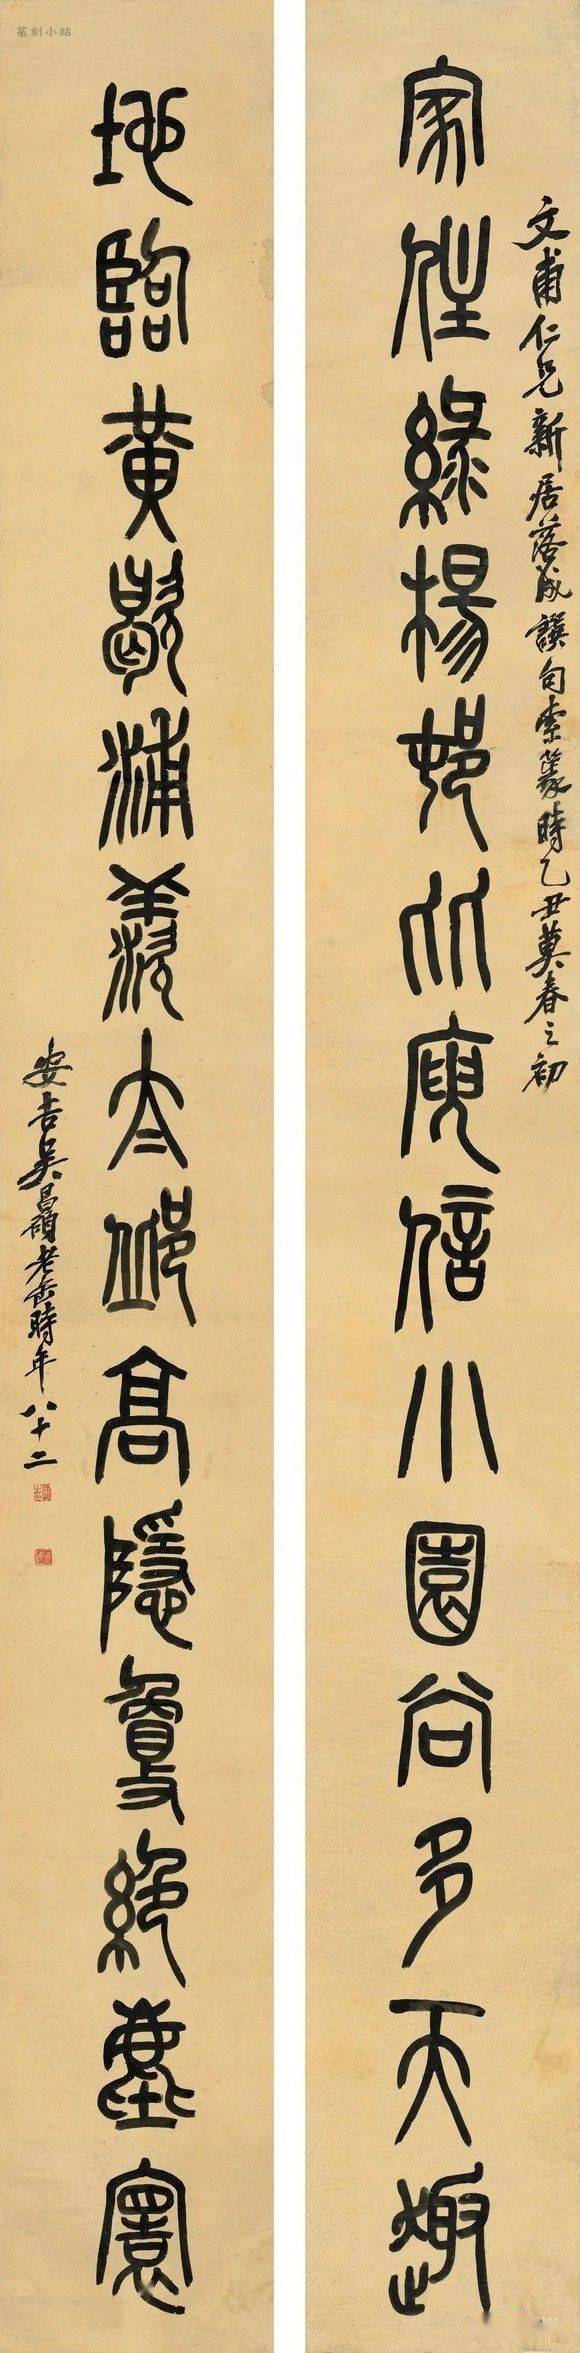 家住綠楊邨比庾信小園尚多天趣
文甫仁兄新居落成譔句索篆時乙丑莫春之初
地臨黃歇浦羨太邱高隱夐絕塵寰
安吉吳昌碩老缶時年八十二
篆刻小站